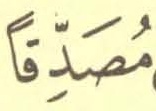 مُصَدِّقاً